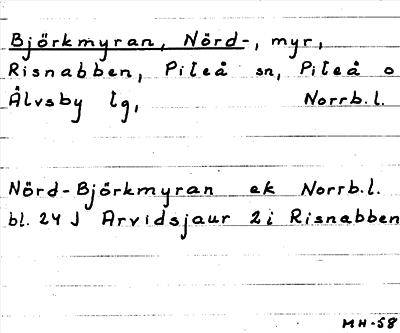 Björkmyran, Nörd-, myr,
Risnabben, Piteå sn, Piteå o
Älvsby tg, Norrb.l.
Nörd-Björkmyran ek Norrb.l.
bl. 24 J Arvidsjaur 2i Risnabben
MH-58